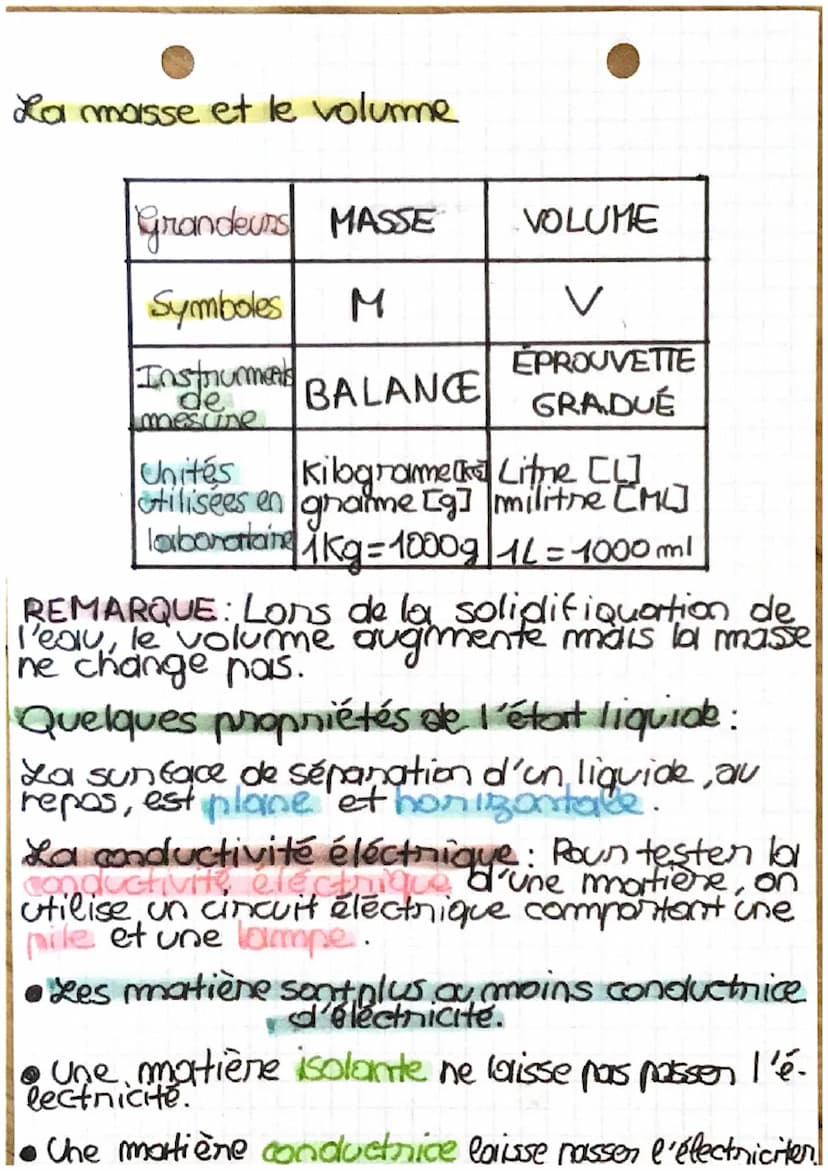 La masse et le volume
Grandeurs MASSE VOLUME
Symboles M V
Instruments de mesure BALANCE ÉPROUVETTE GRADUÉ
Unités utilisées en laborataire Kilograme [kg] grame [g] 1Kg=1000g Litre [L] militre [ML] 1L=1000 ml
REMARQUE: Lors de la solidifiquation de
l'eau, le volume augmente mais la masse
ne change pas.
Quelques propriétés de l'état liquide:
La surface de séparation d'un liquide, au
repos, est plane et horizontale.
La conductivité éléctrique: Pour tester la
conductivité éléctrique d'une matière, on
utilise un circuit éléctrique comportant une
pile et une lampe.
• Les matière sont plus ou moins conductrice
d'éléctricité.
• Une matière isolante ne laisse pas passer l'é-
lectricité.
• Une matière conductrice laisse passer l'électriciter.